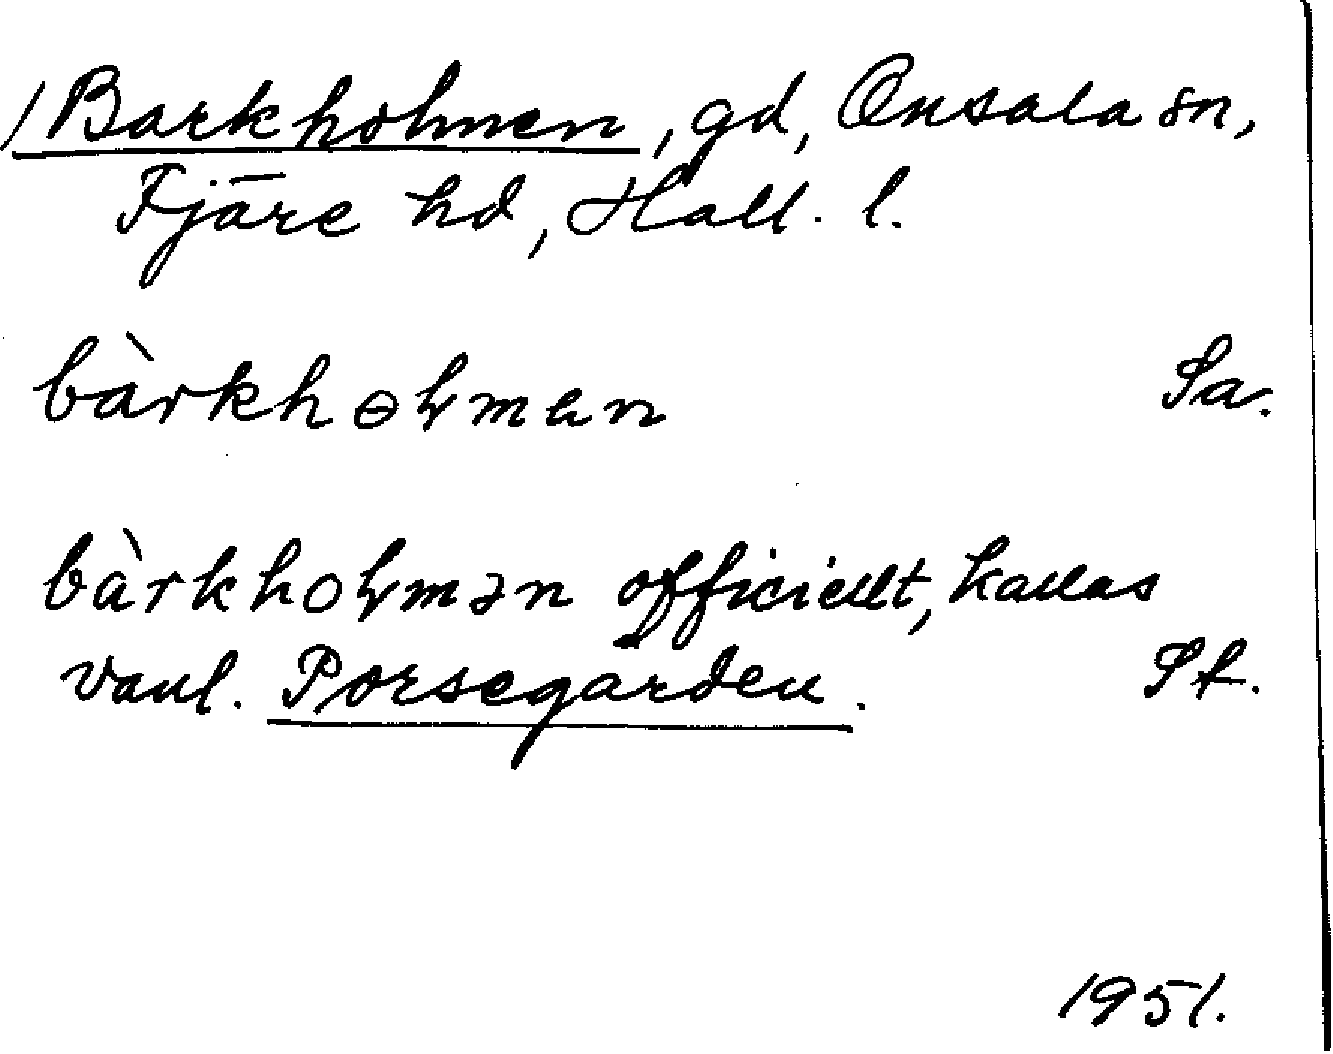 /Barkholmen, gd, Onsala sn,
Fjäre hd, Hall. l.
bàrkhɵɫman Sa.
bàrkhoɫmən officiellt, kallas
vanl. Porsegården. Sf.
1951.